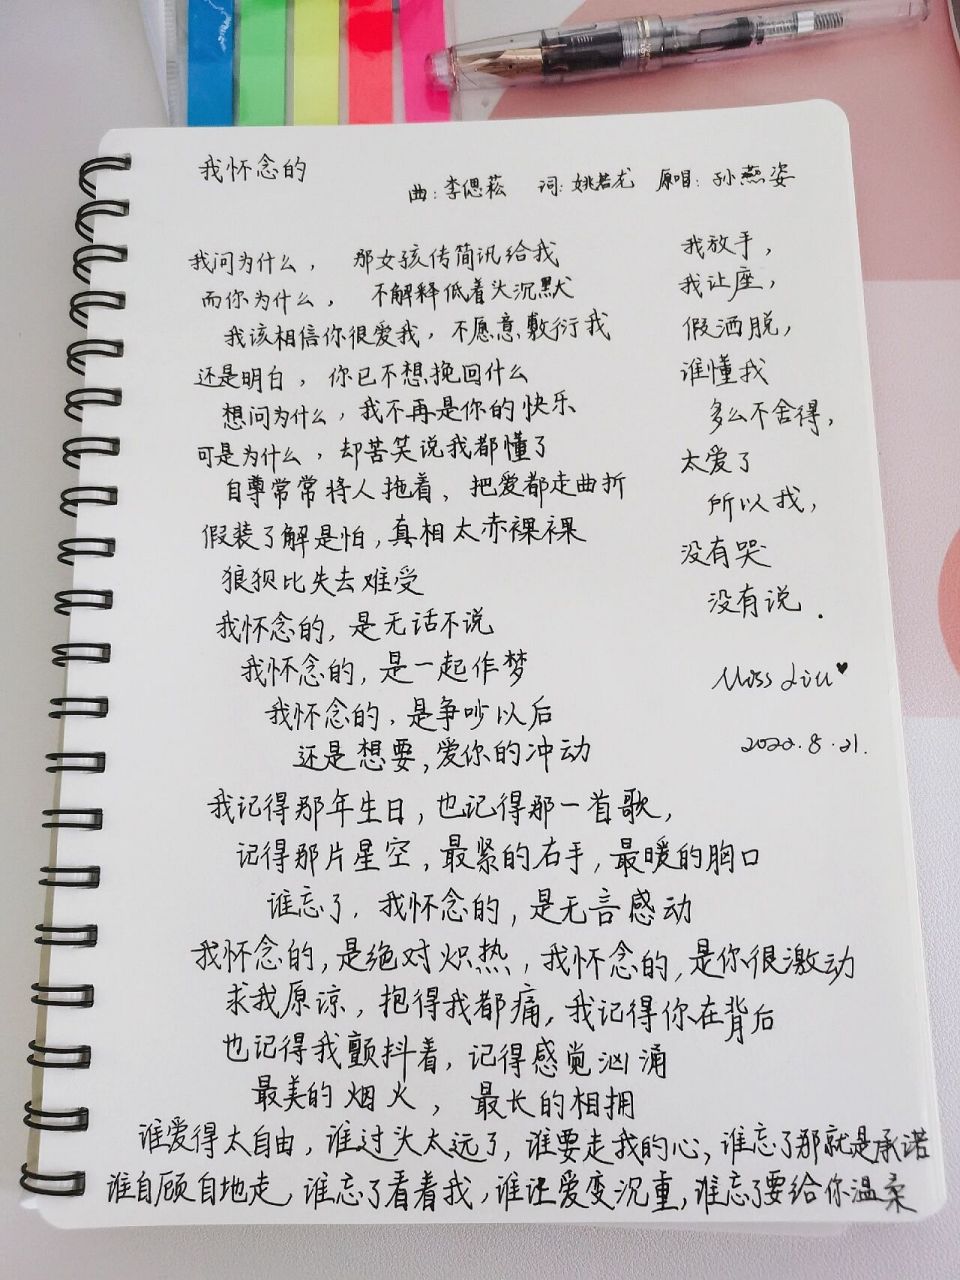 我怀念的
曲:李偲菘 词:姚若龙 原唱:孙燕姿
我问为什么, 那女孩传简讯给我
而你为什么, 不解释低着头沉默
我该相信你很爱我, 不愿意敷衍我
还是明白, 你已不想挽回什么
想问为什么, 我不再是你的快乐
可是为什么, 却苦笑说我都懂了
自尊常常将人拖着、把爱都走曲折
假装了解是怕,真相太赤裸裸
狼狈比失去难受
我怀念的,是无话不说
我怀念的,是一起作梦
我怀念的,是争吵以后
还是想要,爱你的冲动
我记得那年生日,也记得那一首歌,
记得那片星空,最紧的右手,最暖的胸口
谁忘了,我怀念的,是无言感动
我怀念的,是绝对炽热,我怀念的,是你很激动
求我原谅,抱得我都痛,我记得你在背后
也记得我颤抖着,记得感觉汹涌
最美的烟火, 最长的相拥
谁爱得太自由,谁过头太远了,谁要走我的心,谁忘了那就是承诺
谁自顾自地走,谁忘了看着我,谁让爱变沉重,谁忘了要给你温柔
我放手,
我让座,
假洒脱,
谁懂我
多么不舍得,
太爱了
所以我,
没有哭
没有说.
Miss Liu♥
2022.8.21.